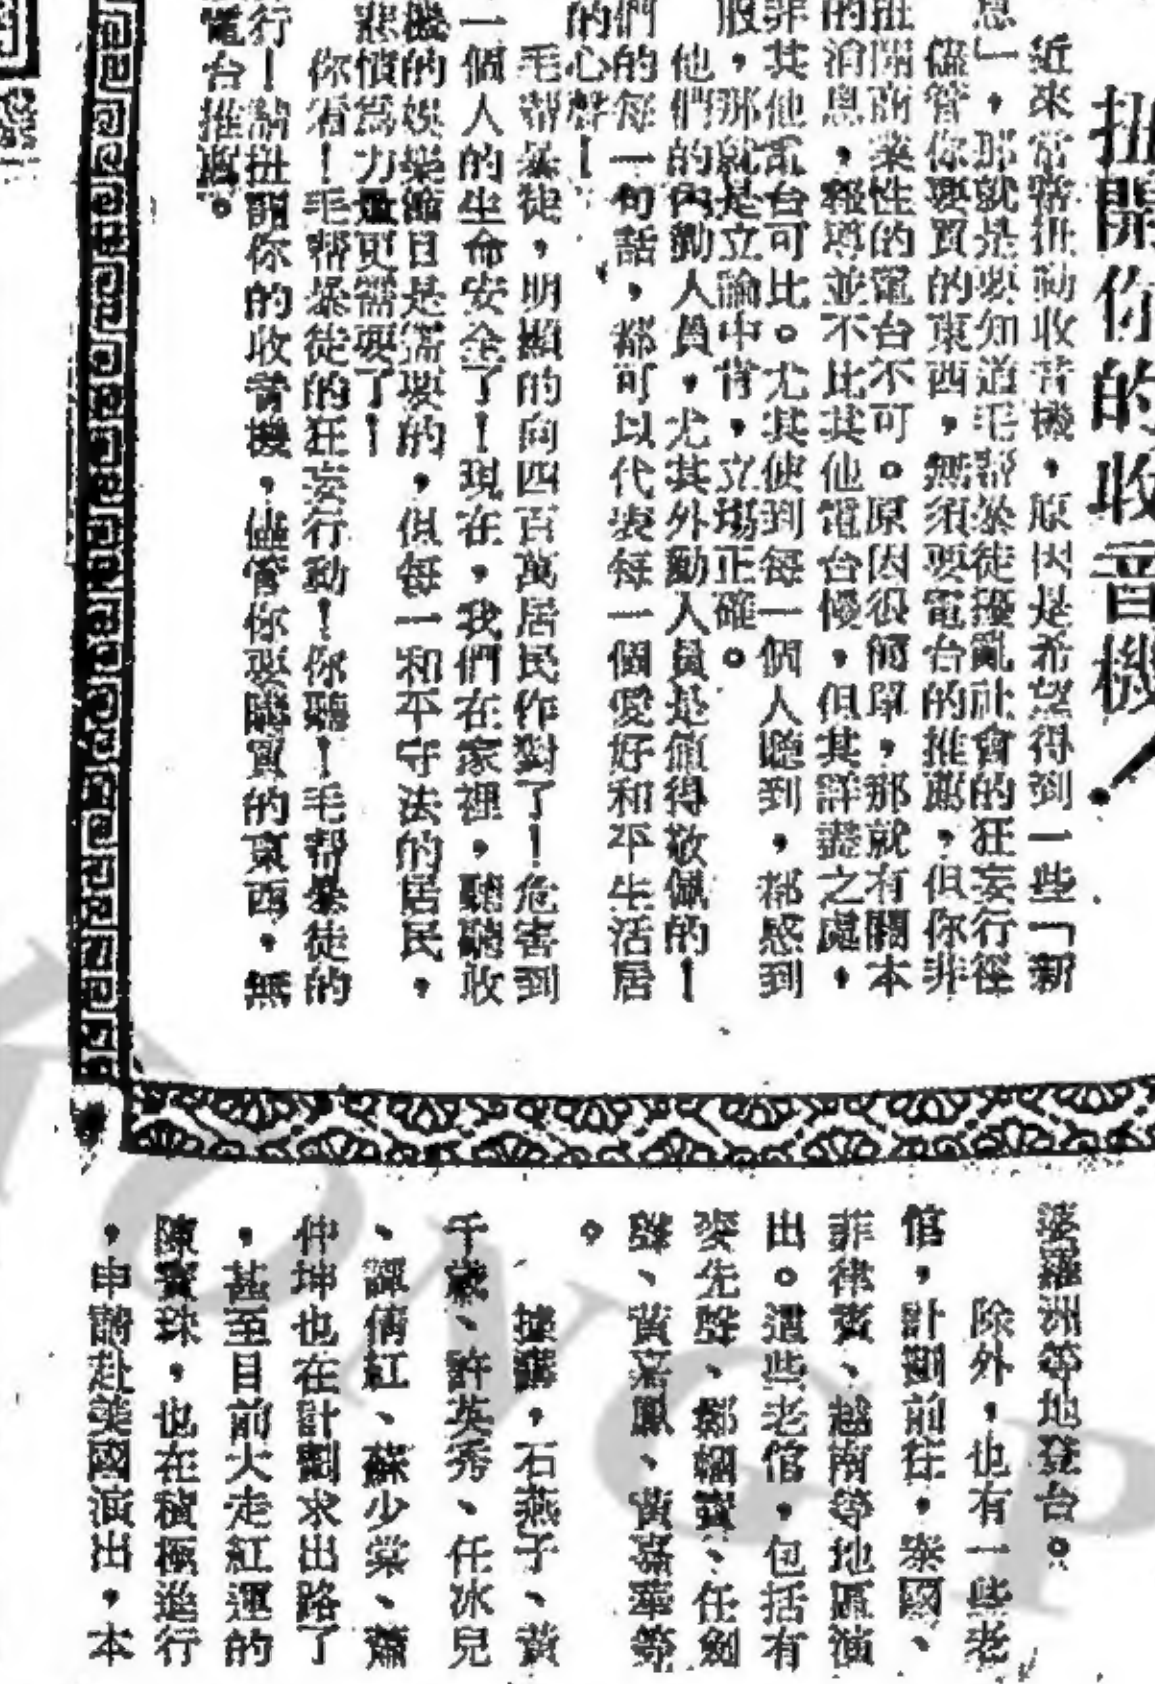 扭開你的收音機
近來常常扭動收音機，原因是希望得到一些「新
息」，那就是要知道毛幫暴徒擾亂社會的狂妄行徑
儘管你要買的東西，無須要電台的推薦，但你非
扭開商業性的電台不可。原因很簡單，那就有關本
的消息，報導並不比其他電台慢，但其詳盡之處，
非其他電台可比。尤其使到每一個人聽到，都感到
服，那就是立論中肯，立場正確。
他們的內勤人員，尤其外勤人員是值得敬佩的！
們的每一句話，都可以代表每一個愛好和平生活居
的心聲！
毛幫暴徒，明顯的向四百萬居民作對了！危害到
一個人的生命安全了！現在，我們在家裡，聽聽收
機的娛樂節目是需要的，但每一和平守法的居民，
悲憤為力量更需要了！
你看！毛幫暴徒的狂妄行動！你聽！毛幫暴徒的
行！請扭開你的收音機，儘管你要購買的東西，無
電台推薦。
婆羅洲等地登台。
除外，也有一些老
倌，計劃前往，泰國、
菲律賓、越南等地區演
出。這些老倌，包括有
麥先聲、鄭幗寶、任劍
輝、黃嘉鳳、黃嘉華等
。
據講，石燕子、黃
千歲、許英秀、任冰兒
、譚倩紅、蘇少棠、蕭
仲坤也在計劃求出路了
，甚至目前大走紅運的
陳寶珠，也在積極進行
，申請赴美國演出，本